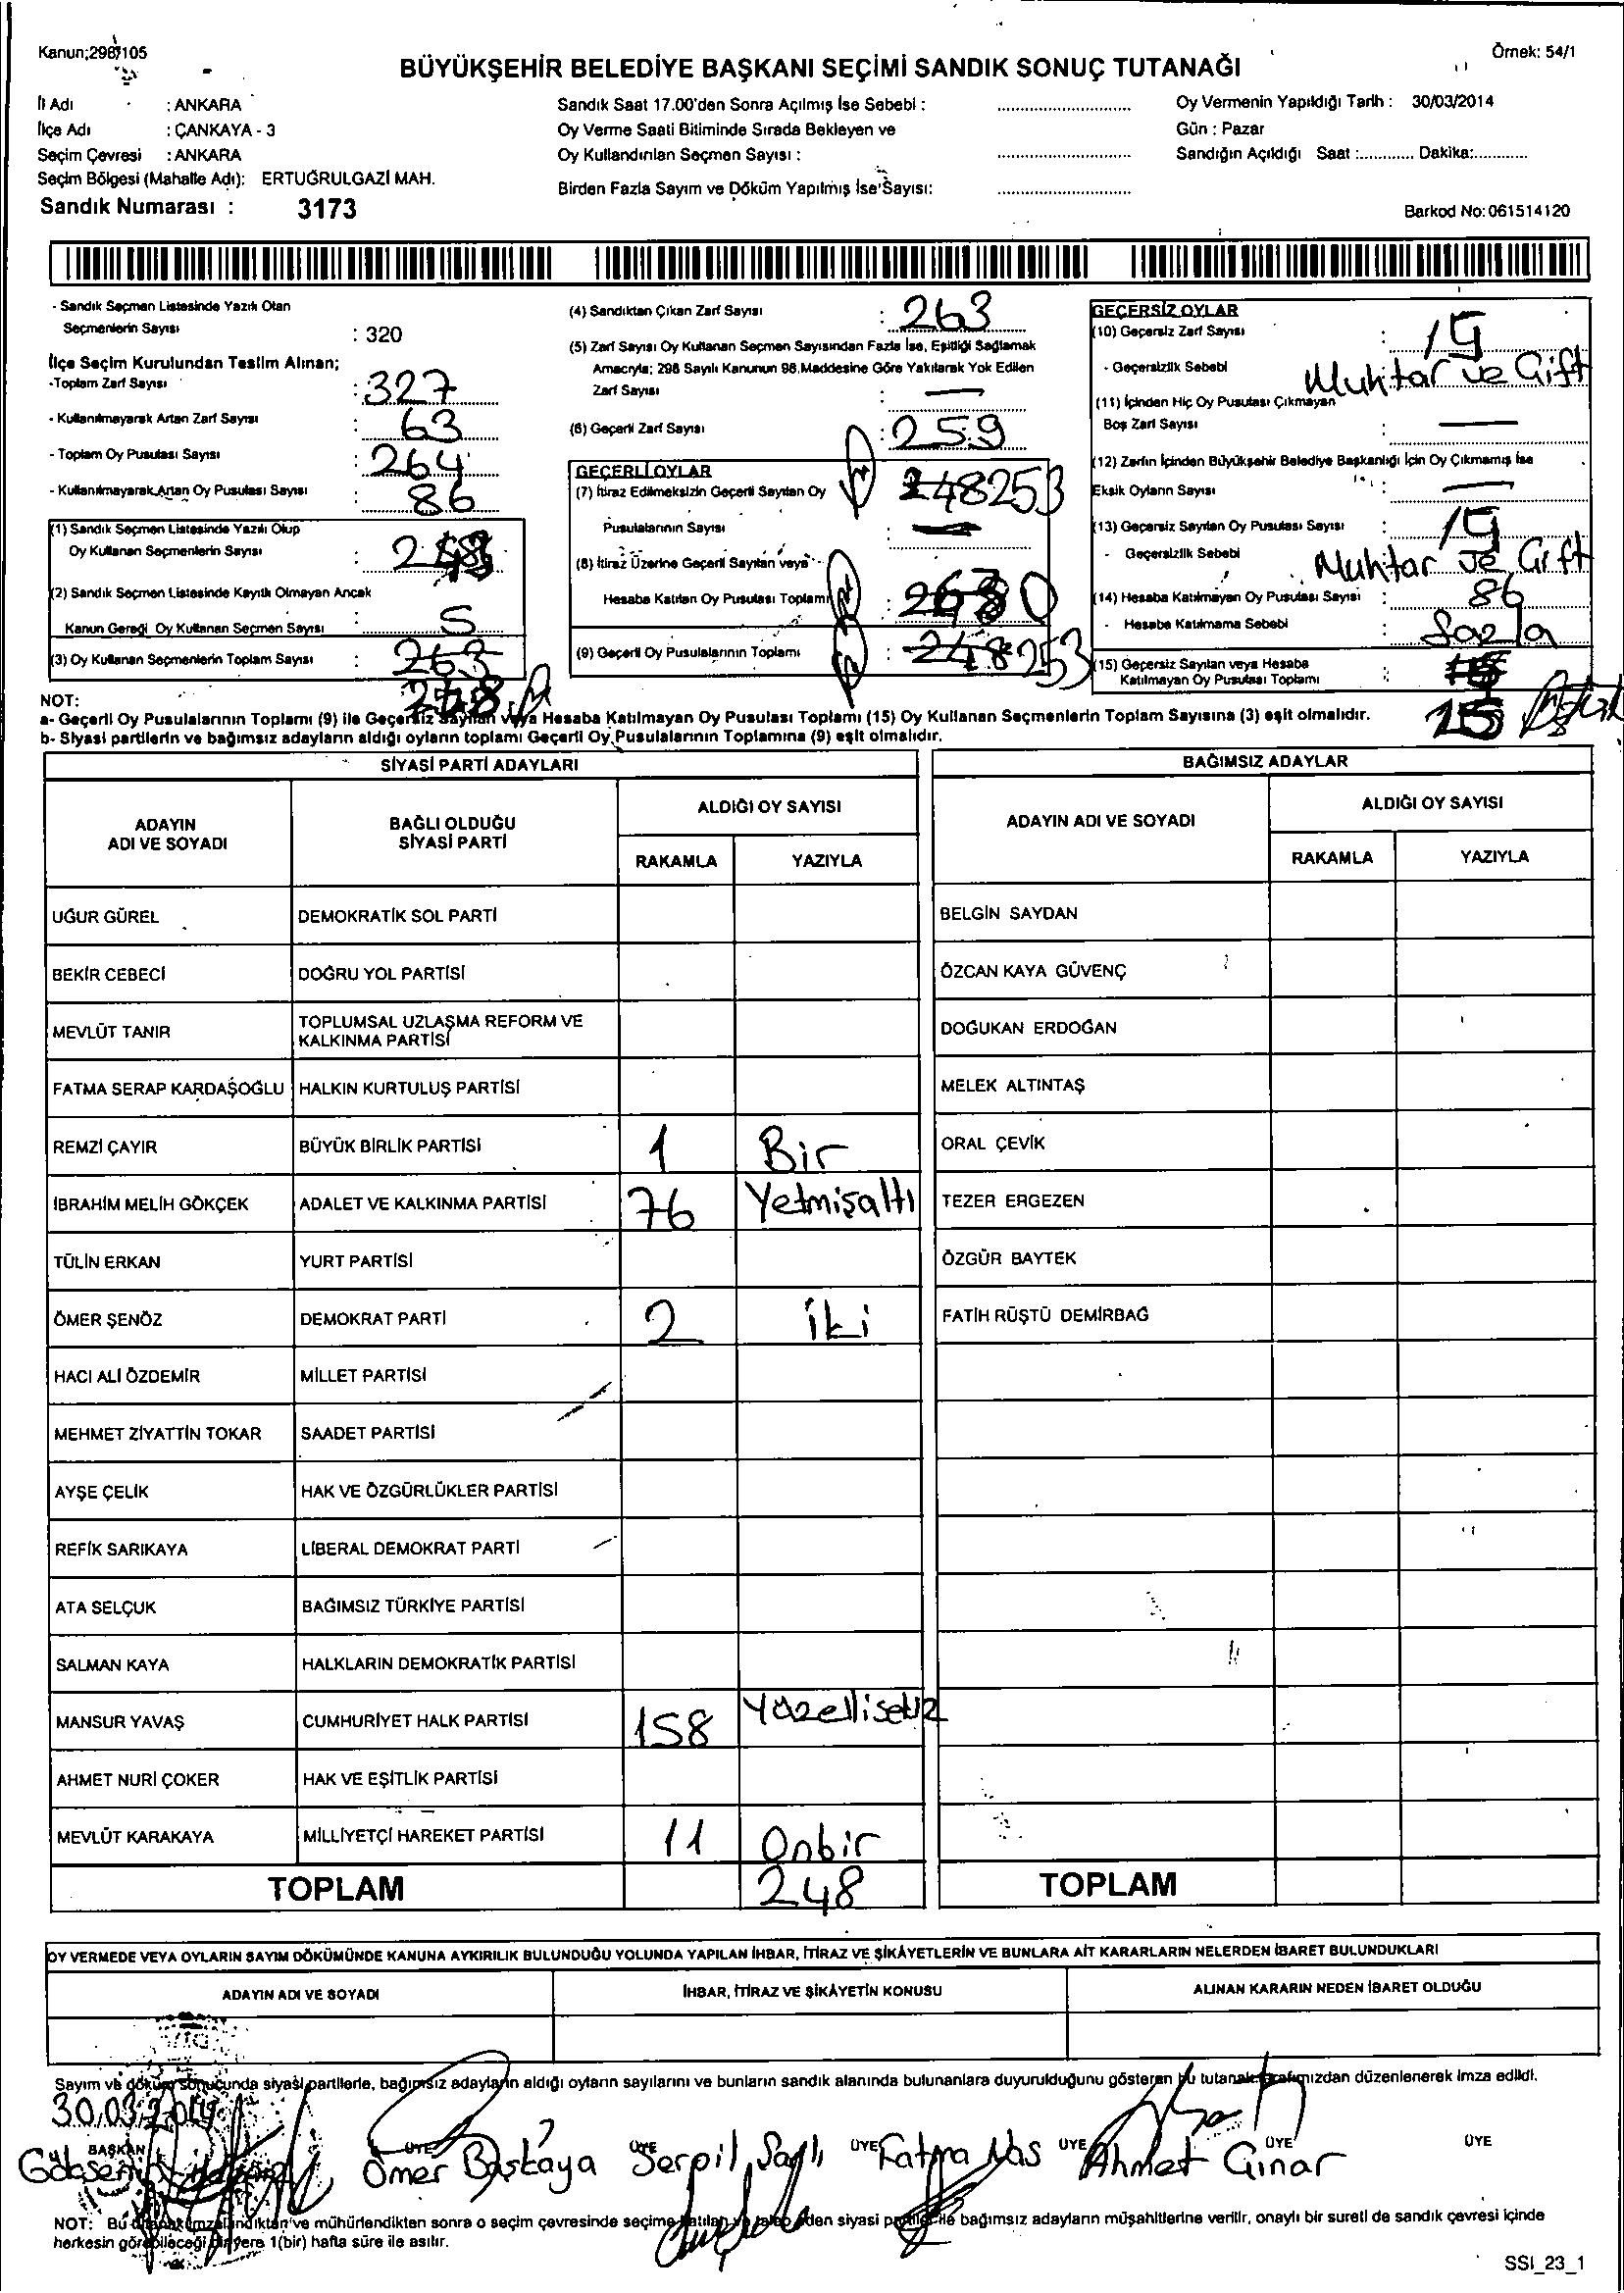 Kanun;298/105
Örnek: 54/1
BÜYÜKŞEHİR BELEDİYE BAŞKANI SEÇİMİ SANDIK SONUÇ TUTANAĞI
İl Adı : ANKARA
İlçe Adı : ÇANKAYA - 3
Seçim Çevresi : ANKARA
Seçim Bölgesi (Mahalle Adı): ERTUĞRULGAZİ MAH.
Sandık Numarası : 3173
Sandık Saat 17.00'den Sonra Açılmış İse Sebebi :
Oy Verme Saati Bitiminde Sırada Bekleyen ve
Oy Kullandırılan Seçmen Sayısı :
Birden Fazla Sayım ve Döküm Yapılmış İse Sayısı:
Oy Vermenin Yapıldığı Tarih : 30/03/2014
Gün : Pazar
Sandığın Açıldığı Saat :............ Dakika:............
Barkod No:061514120
- Sandık Seçmen Listesinde Yazılı Olan
Seçmenlerin Sayısı : 320
İlçe Seçim Kurulundan Teslim Alınan;
-Toplam Zarf Sayısı : 327
- Kullanılmayarak Artan Zarf Sayısı : 63
- Toplam Oy Pusulası Sayısı : 264
- Kullanılmayarak Artan Oy Pusulası Sayısı : 86
(1) Sandık Seçmen Listesinde Yazılı Olup
Oy Kullanan Seçmenlerin Sayısı :
(2) Sandık Seçmen Listesinde Kayıtlı Olmayan Ancak
Kanun Gereği Oy Kullanan Seçmen Sayısı : 5
(3) Oy Kullanan Seçmenlerin Toplam Sayısı : 263
268
(4) Sandıktan Çıkan Zarf Sayısı : 263
(5) Zarf Sayısı Oy Kullanan Seçmen Sayısından Fazla İse, Eşitliği Sağlamak
Amacıyla; 298 Sayılı Kanunun 98.Maddesine Göre Yakılarak Yok Edilen
Zarf Sayısı : —
(6) Geçerli Zarf Sayısı : 259
GEÇERLİ OYLAR
(7) İtiraz Edilmeksizin Geçerli Sayılan Oy 248 253
Pusulalarının Sayısı :
(8) İtiraz Üzerine Geçerli Sayılan veya
Hesaba Katılan Oy Pusulası Toplamı : 0
(9) Geçerli Oy Pusulalarının Toplamı : 248 253
GEÇERSİZ OYLAR
(10) Geçersiz Zarf Sayısı : 15
- Geçersizlik Sebebi Muhtar ve Çift
(11) İçinden Hiç Oy Pusulası Çıkmayan
Boş Zarf Sayısı : —
(12) Zarfın İçinden Büyükşehir Belediye Başkanlığı İçin Oy Çıkmamış İse
Eksik Oyların Sayısı : —
(13) Geçersiz Sayılan Oy Pusulası Sayısı : 15
- Geçersizlik Sebebi Muhtar ve Çift
(14) Hesaba Katılmayan Oy Pusulası Sayısı : 86
- Hesaba Katılmama Sebebi : fazla
(15) Geçersiz Sayılan veya Hesaba
Katılmayan Oy Pusulası Toplamı :
15
NOT:
a- Geçerli Oy Pusulalarının Toplamı (9) ile Geçersiz Sayılan veya Hesaba Katılmayan Oy Pusulası Toplamı (15) Oy Kullanan Seçmenlerin Toplam Sayısına (3) eşit olmalıdır.
b- Siyasi partilerin ve bağımsız adayların aldığı oyların toplamı Geçerli Oy Pusulalarının Toplamına (9) eşit olmalıdır.
SİYASİ PARTİ ADAYLARI
BAĞIMSIZ ADAYLAR
ADAYIN ADI VE SOYADI
BAĞLI OLDUĞU SİYASİ PARTİ
ALDIĞI OY SAYISI
RAKAMLA YAZIYLA
ADAYIN ADI VE SOYADI
ALDIĞI OY SAYISI
RAKAMLA YAZIYLA
UĞUR GÜREL DEMOKRATİK SOL PARTİ BELGİN SAYDAN
BEKİR CEBECİ DOĞRU YOL PARTİSİ ÖZCAN KAYA GÜVENÇ
MEVLÜT TANIR TOPLUMSAL UZLAŞMA REFORM VE KALKINMA PARTİSİ DOĞUKAN ERDOĞAN
FATMA SERAP KARDAŞOĞLU HALKIN KURTULUŞ PARTİSİ MELEK ALTINTAŞ
REMZİ ÇAYIR BÜYÜK BİRLİK PARTİSİ 1 Bir ORAL ÇEVİK
İBRAHİM MELİH GÖKÇEK ADALET VE KALKINMA PARTİSİ 76 Yetmişaltı TEZER ERGEZEN
TÜLİN ERKAN YURT PARTİSİ ÖZGÜR BAYTEK
ÖMER ŞENÖZ DEMOKRAT PARTİ 2 İki FATİH RÜŞTÜ DEMİRBAĞ
HACI ALİ ÖZDEMİR MİLLET PARTİSİ
MEHMET ZİYATTİN TOKAR SAADET PARTİSİ
AYŞE ÇELİK HAK VE ÖZGÜRLÜKLER PARTİSİ
REFİK SARIKAYA LİBERAL DEMOKRAT PARTİ
ATA SELÇUK BAĞIMSIZ TÜRKİYE PARTİSİ
SALMAN KAYA HALKLARIN DEMOKRATİK PARTİSİ
MANSUR YAVAŞ CUMHURİYET HALK PARTİSİ 158 Yüzellisekiz
AHMET NURİ ÇOKER HAK VE EŞİTLİK PARTİSİ
MEVLÜT KARAKAYA MİLLİYETÇİ HAREKET PARTİSİ 11 Onbir
TOPLAM 248 TOPLAM
OY VERMEDE VEYA OYLARIN SAYIM DÖKÜMÜNDE KANUNA AYKIRILIK BULUNDUĞU YOLUNDA YAPILAN İHBAR, İTİRAZ VE ŞİKÂYETLERİN VE BUNLARA AİT KARARLARIN NELERDEN İBARET BULUNDUKLARI
ADAYIN ADI VE SOYADI İHBAR, İTİRAZ VE ŞİKÂYETİN KONUSU ALINAN KARARIN NEDEN İBARET OLDUĞU
Sayım ve döküm sonucunda siyasi partilerle, bağımsız adayların aldığı oyların sayılarını ve bunların sandık alanında bulunanlara duyurulduğunu gösteren bu tutanak tarafımızdan düzenlenerek imza edildi.
30.03.2014
BAŞKAN ÜYE ÜYE ÜYE ÜYE ÜYE ÜYE
Ömer Başkaya Serpil Sağlı Fatma Nas Ahmet Çınar
NOT: Bu tutanak imzalandıktan ve mühürlendikten sonra o seçim çevresinde seçime katılan ve talep eden siyasi partiler ile bağımsız adayların müşahitlerine verilir, onaylı bir sureti de sandık çevresi içinde
herkesin görebileceği bir yere 1(bir) hafta süre ile asılır.
SSI_23_1